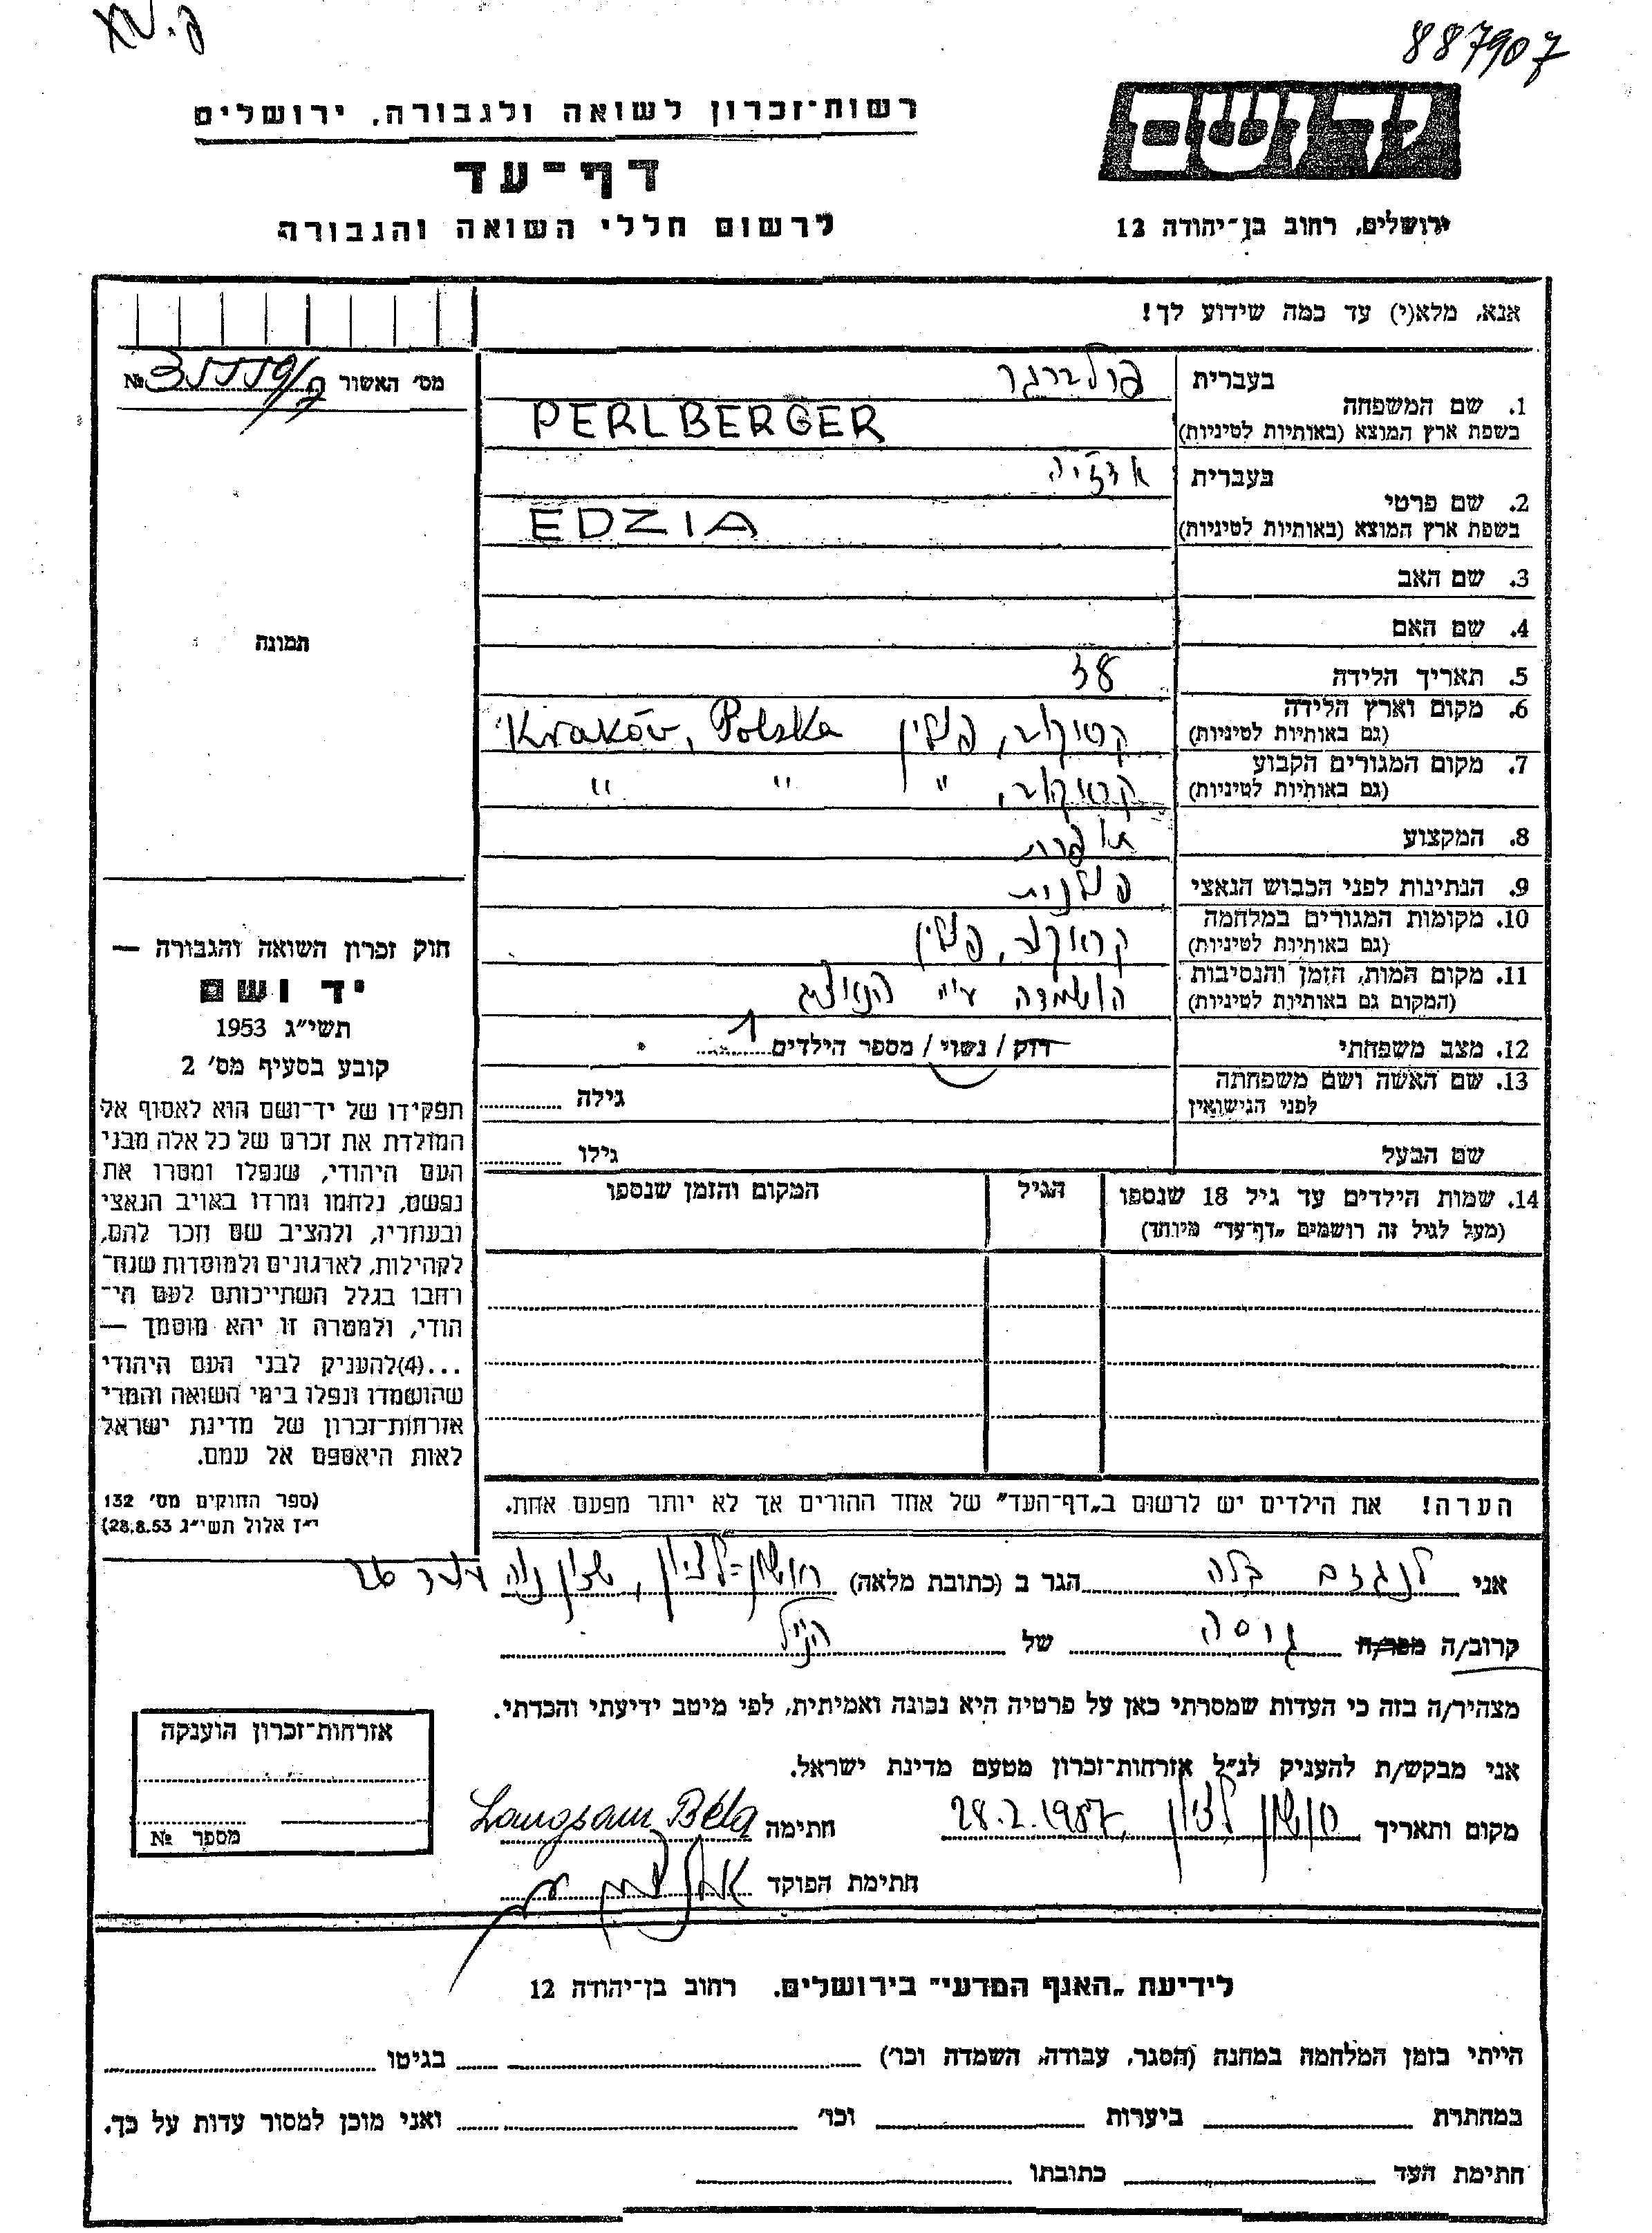 887907
יד ושם
ירושלים, רחוב בן־יהודה 12
רשות־זכרון לשואה ולגבורה, ירושלים
דף־עד
לרשום חללי השואה והגבורה
אנא, מלא(י) עד כמה שידוע לך!
מס׳ האשור №
1. שם המשפחה
בעברית פרלברגר
בשפת ארץ המוצא (באותיות לטיניות) PERLBERGER
2. שם פרטי
בעברית אדז׳יה
בשפת ארץ המוצא (באותיות לטיניות) EDZIA
3. שם האב
4. שם האם
5. תאריך הלידה 38
6. מקום וארץ הלידה
(גם באותיות לטיניות) קרקוב, פולין Kraków, Polska
7. מקום המגורים הקבוע
(גם באותיות לטיניות) קראקוב, " " "
8. המקצוע תופרת
9. הנתינות לפני הכבוש הנאצי פולנית
10. מקומות המגורים במלחמה
(גם באותיות לטיניות) קראקוב, פולין
11. מקום המות, הזמן והנסיבות
(המקום גם באותיות לטיניות) הושמדה ע״י הנאצים
12. מצב משפחתי רוק / נשוי / מספר הילדים 1
13. שם האשה ושם משפחתה
לפני הנישואין גילה
שם הבעל גילו
14. שמות הילדים עד גיל 18 שנספו הגיל המקום והזמן שנספו
(מעל לגיל זה רושמים „דף־עד״ מיוחד)
הערה! את הילדים יש לרשום ב„דף־העד״ של אחד ההורים אך לא יותר מפעם אחת.
תמונה
חוק זכרון השואה והגבורה —
יד ושם
תשי״ג 1953
קובע בסעיף מס׳ 2
תפקידו של יד־ושם הוא לאסוף אל
המולדת את זכרם של כל אלה מבני
העם היהודי, שנפלו ומסרו את
נפשם, נלחמו ומרדו באויב הנאצי
ובעוזריו, ולהציב שם וזכר להם,
לקהילות, לארגונים ולמוסדות שנח־
רבו בגלל השתייכותם לעם הי־
הודי, ולמטרה זו יהא מוסמך —
...(4)להעניק לבני העם היהודי
שהושמדו ונפלו בימי השואה והמרי
אזרחות־זכרון של מדינת ישראל
לאות היאספם אל עמם.
(ספר החוקים מס׳ 132
י״ז אלול תשי״ג 28.8.53)
אני לנגזם בלה הגר ב (כתובת מלאה) ראשון־לציון,
קרוב/ה מכר/ה גיסה של הנ״ל
מצהיר/ה בזה כי העדות שמסרתי כאן על פרטיה היא נכונה ואמיתית, לפי מיטב ידיעתי והכרתי.
אני מבקש/ת להעניק לנ״ל אזרחות־זכרון מטעם מדינת ישראל.
מקום ותאריך ראשון לציון 28.2.1987 חתימה Langsam Bela
חתימת הפוקד
אזרחות־זכרון הוענקה
מספר №
לידיעת „האגף המדעי״ בירושלים. רחוב בן־יהודה 12
הייתי בזמן המלחמה במחנה (הסגר, עבודה, השמדה וכו׳) בגיטו
במחתרת ביערות וכו׳ ואני מוכן למסור עדות על כך.
חתימת העד כתובתו